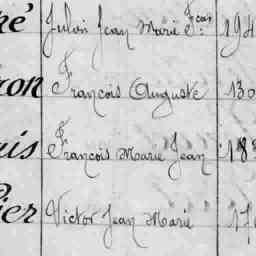 né Julien Jean Marie Fçois 194
ron François Auguste 130
uis François Marie Jean 183
ier Victor Jean Marie